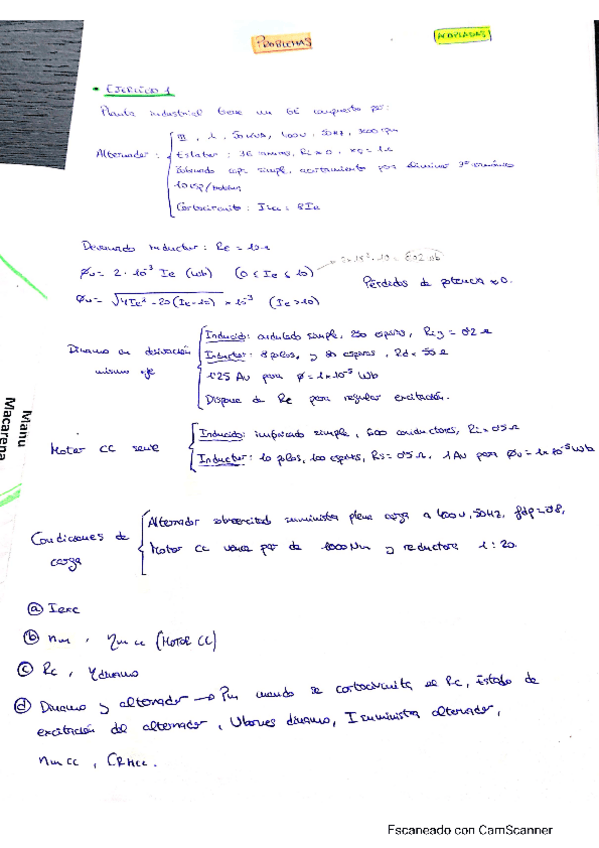 PROBLEMAS
ACOPLADAS
• EJERCICIO 1
Planta industrial tiene un GE compuesto por:
Alternador:
III, λ, 50 kVA, 400 V, 50 Hz, 3000 rpm
Estator: 36 ranuras, Ri ≈ 0,
simple, acortamiento para eliminar 3º armónico
10 esp/bobina
Cortocircuito:
Devanado inductor: Re = 10 Ω
Øv = 2 · 10⁻³ Ie (Wb) (0 ≤ Ie ≤ 10)
Øv = √4Ie² - 20(Ie-10) × 10⁻³ (Ie > 10)
Pérdidas de potencia ≈ 0.
Dinamo en derivación
mismo eje
Inducido: ondulado simple, 250 espiras, Rig = 0'2 Ω
Inductor: 8 polos, y 80 espiras, Rd = 50 Ω
1'25 Av para Ø = 1 × 10⁻⁵ Wb
Dispone de Rc para regular excitación.
Motor CC serie
Inducido: imbricado simple, 600 conductores, Ri = 0'5 Ω
Inductor: 10 polos, 100 espiras, Rs = 0'5 Ω, 1 Av para Øv = 1 × 10⁻⁵ Wb
Condiciones de
carga
Alternador sobreexcitado suministra plena carga a 400 V, 50 Hz, fdp = 0'8,
Motor CC vence par de 1000 Nm y reductora 1:20.
ⓐ Iexc
ⓑ nm, ηm cc (MOTOR CC)
ⓒ Rc, ηdinamo
ⓓ Dinamo y alternador → Pm cuando se cortocircuita el Rc, Estado de
excitación del alternador, Ubornes dinamo, I suministra alternador,
nm cc,
Manu
Macarena
Escaneado con CamScanner